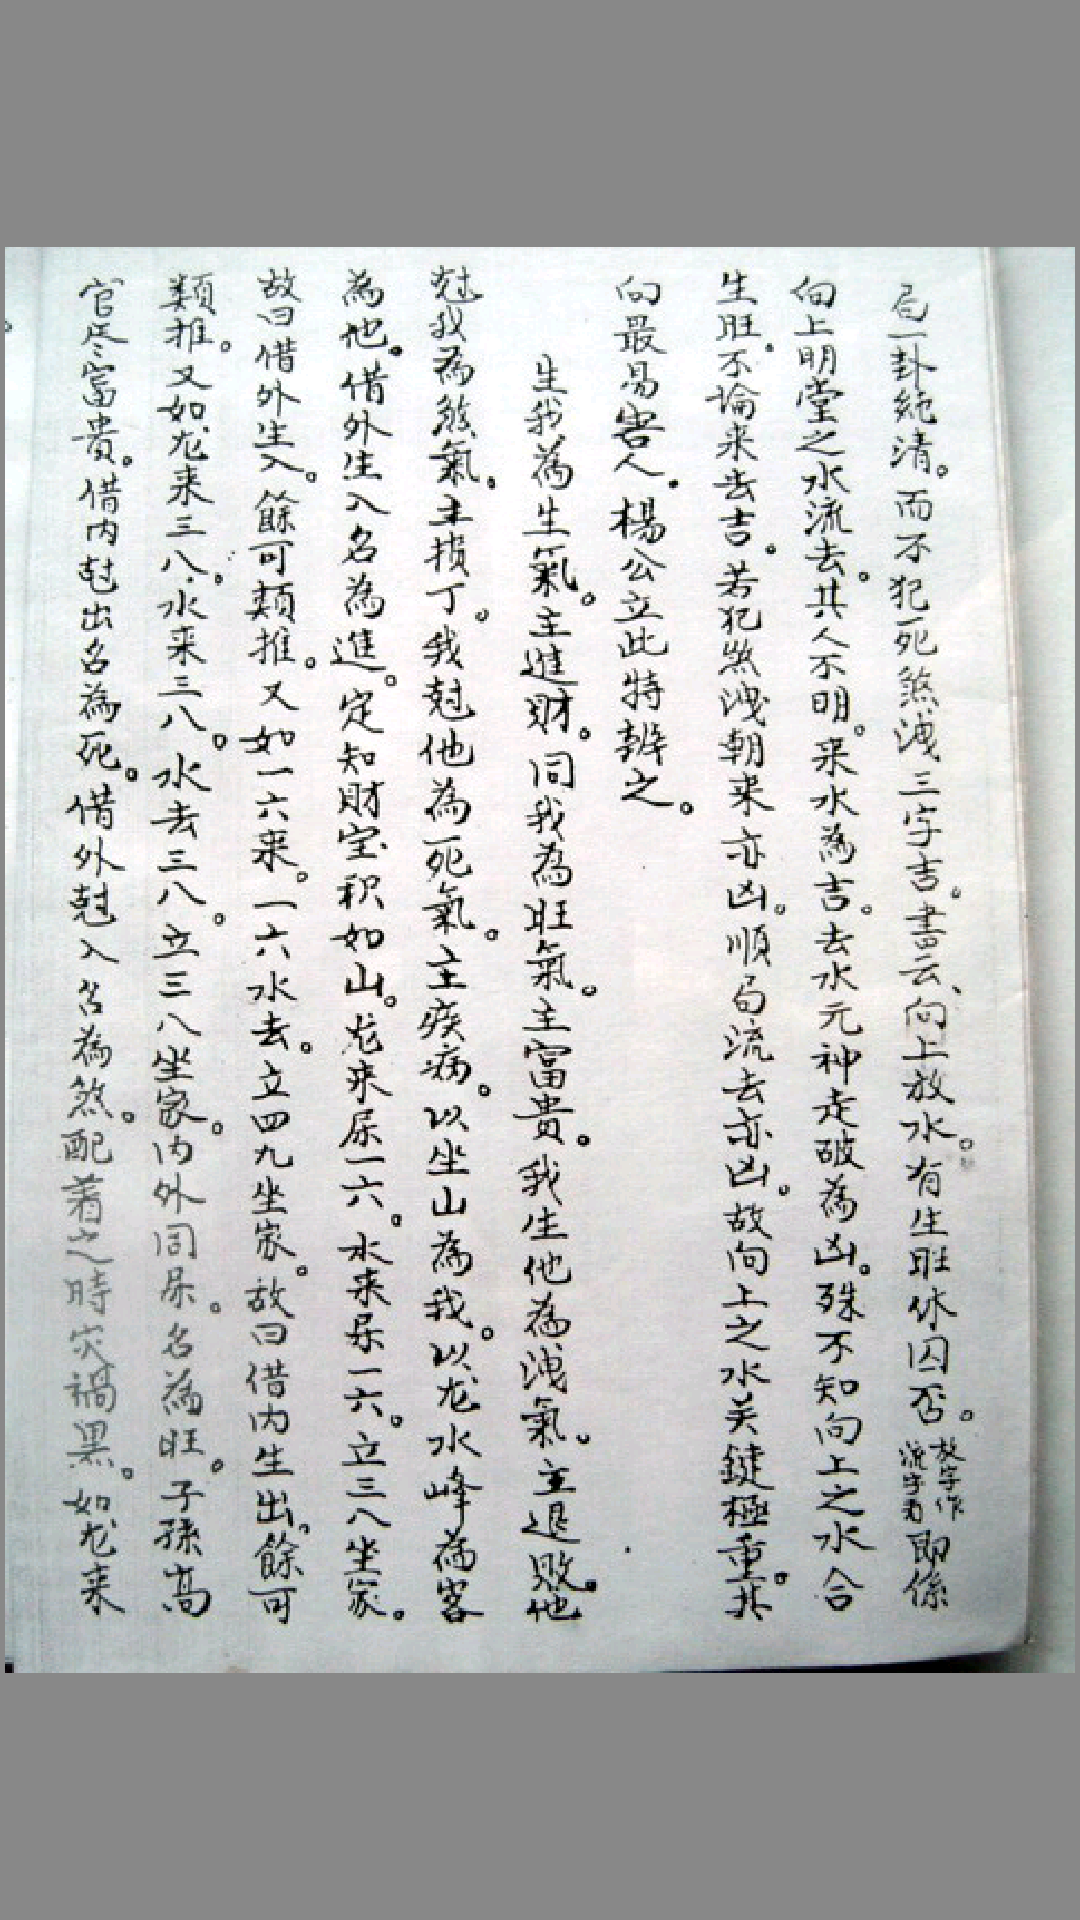 局一卦純清。而不犯死煞洩三字吉。書云、向上放水。有生旺休囚否。放字作流字看即係
向上明堂之水流去。其人不明。来水為吉。去水元神走破為凶。殊不知向上之水合
生旺。不論来去吉。若犯煞洩朝来亦凶。順局流去亦凶。故向上之水关鍵極重。其
向最易害人。楊公立此特辨之。
生我為生氣。主進財。同我為旺氣。主富貴。我生他為洩氣。主退敗。他
尅我為煞氣。主損丁。我尅他為死氣。主疾病。以坐山為我。以龙水峰為客
為他。借外生入名為進。定知財宝积如山。龙来屌一六。水来屌一六。立三八坐家。
故曰借外生入。餘可類推。又如一六来。一六水去。立四九坐家。故曰借内生出。餘可
類推。又如龙来三八。水来三八。水去三八。立三八坐家。内外同屌。名為旺。子孫高
官尽富貴。借内尅出名為死。借外尅入名為煞。配着之時灾禍黑。如龙来